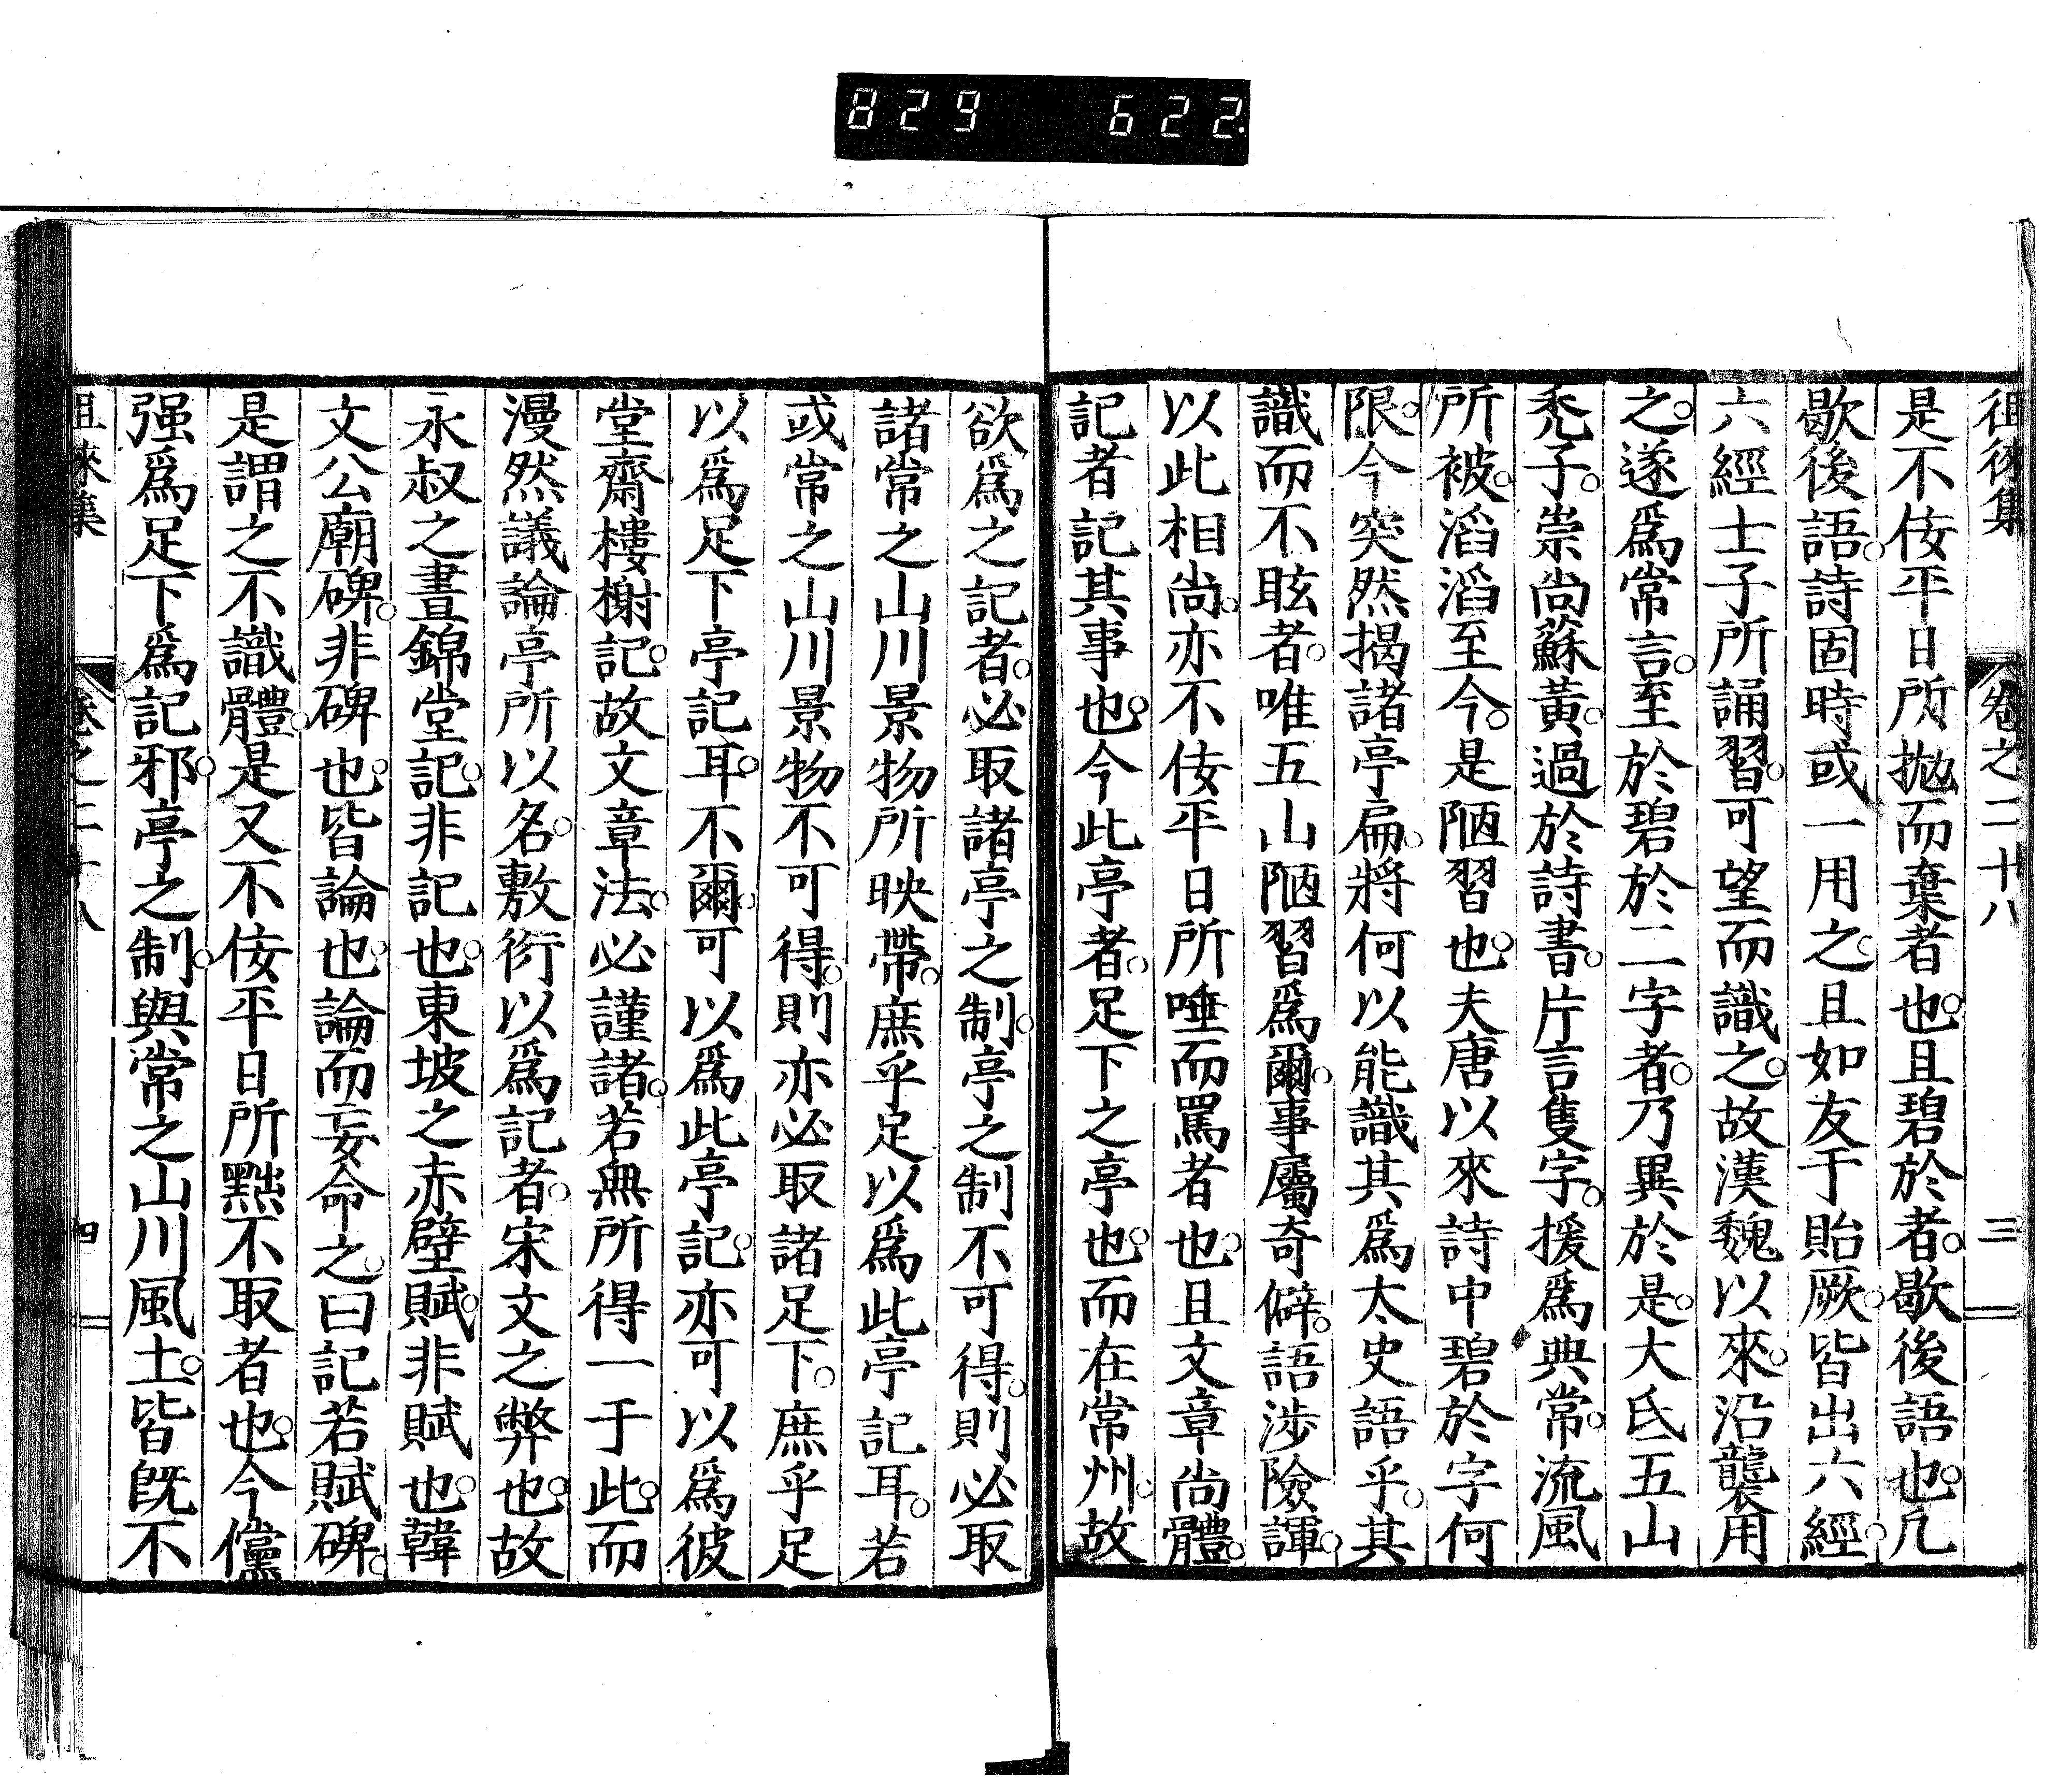 829 622.
徂徠集 卷之二十八 三
是不佞平日所拋而棄者也。且碧於者。歇後語也。凡
歇後語。詩固時或一用之。且如友于貽厥。皆出六經。
六經士子所誦習。可望而識之。故漢魏以來。沿襲用
之。遂爲常言。至於碧於二字者。乃異於是。大氐五山
禿子。崇尚蘇黃。過於詩書。片言隻字。援爲典常。流風
所被。滔滔至今。是陋習也。夫唐以來詩中碧於字何
限。今突然揭諸亭扁。將何以能識其爲太史語乎。其
識而不眩者。唯五山陋習爲爾。事屬奇僻。語涉險諢。
以此相尚。亦不佞平日所唾而罵者也。且文章尚體。
記者記其事也。今此亭者。足下之亭也。而在常州。故
欲爲之記者。必取諸亭之制。亭之制不可得。則必取
諸常之山川景物所映帶。庶乎足以爲此亭記耳。若
或常之山川景物不可得。則亦必取諸足下。庶乎足
以爲足下亭記耳。不爾。可以爲此亭記。亦可以爲彼
堂齋樓榭記。故文章法。必謹諸。若無所得一于此。而
漫然議論亭所以名。敷衍以爲記者。宋文之弊也。故
永叔之晝錦堂記。非記也。東坡之赤壁賦。非賦也。韓
文公廟碑。非碑也。皆論也。論而妄命之。曰記若賦碑。
是謂之不識體。是又不佞平日所黜不取者也。今儻
强爲足下爲記邪。亭之制。與常之山川風土。皆旣不
徂徠集 卷之二十八 四